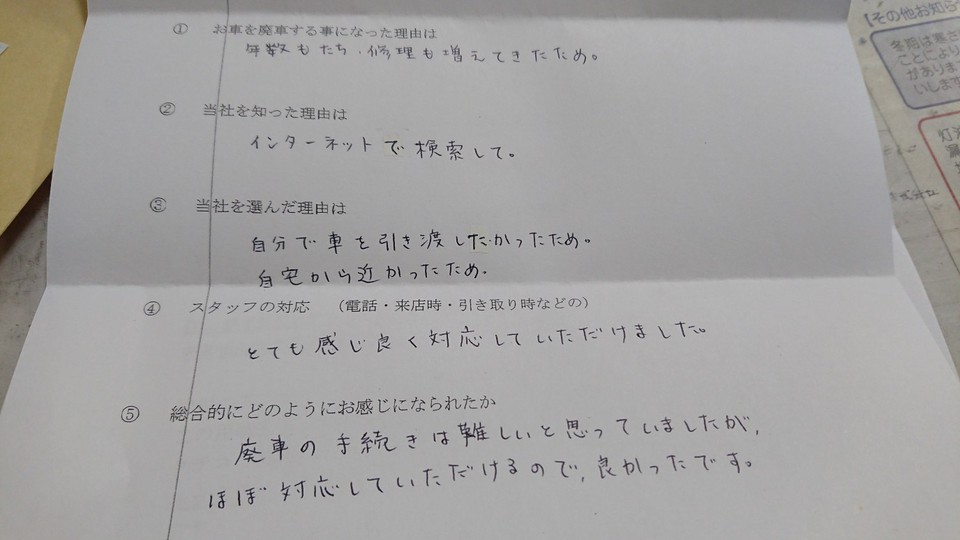 ① お車を廃車する事になった理由は
年数もたち、修理も増えてきたため。
② 当社を知った理由は
インターネットで検索して。
③ 当社を選んだ理由は
自分で車を引き渡したかったため。
自宅から近かったため.
④ スタッフの対応 （電話・来店時・引き取り時などの）
とても感じ良く対応していただけました。
⑤ 総合的にどのようにお感じになられたか
廃車の手続きは難しいと思っていましたが,
ほぼ対応していただけるので,良かったです。
【その他お知ら
冬期は
ことにより
がありま
いします
株式会社